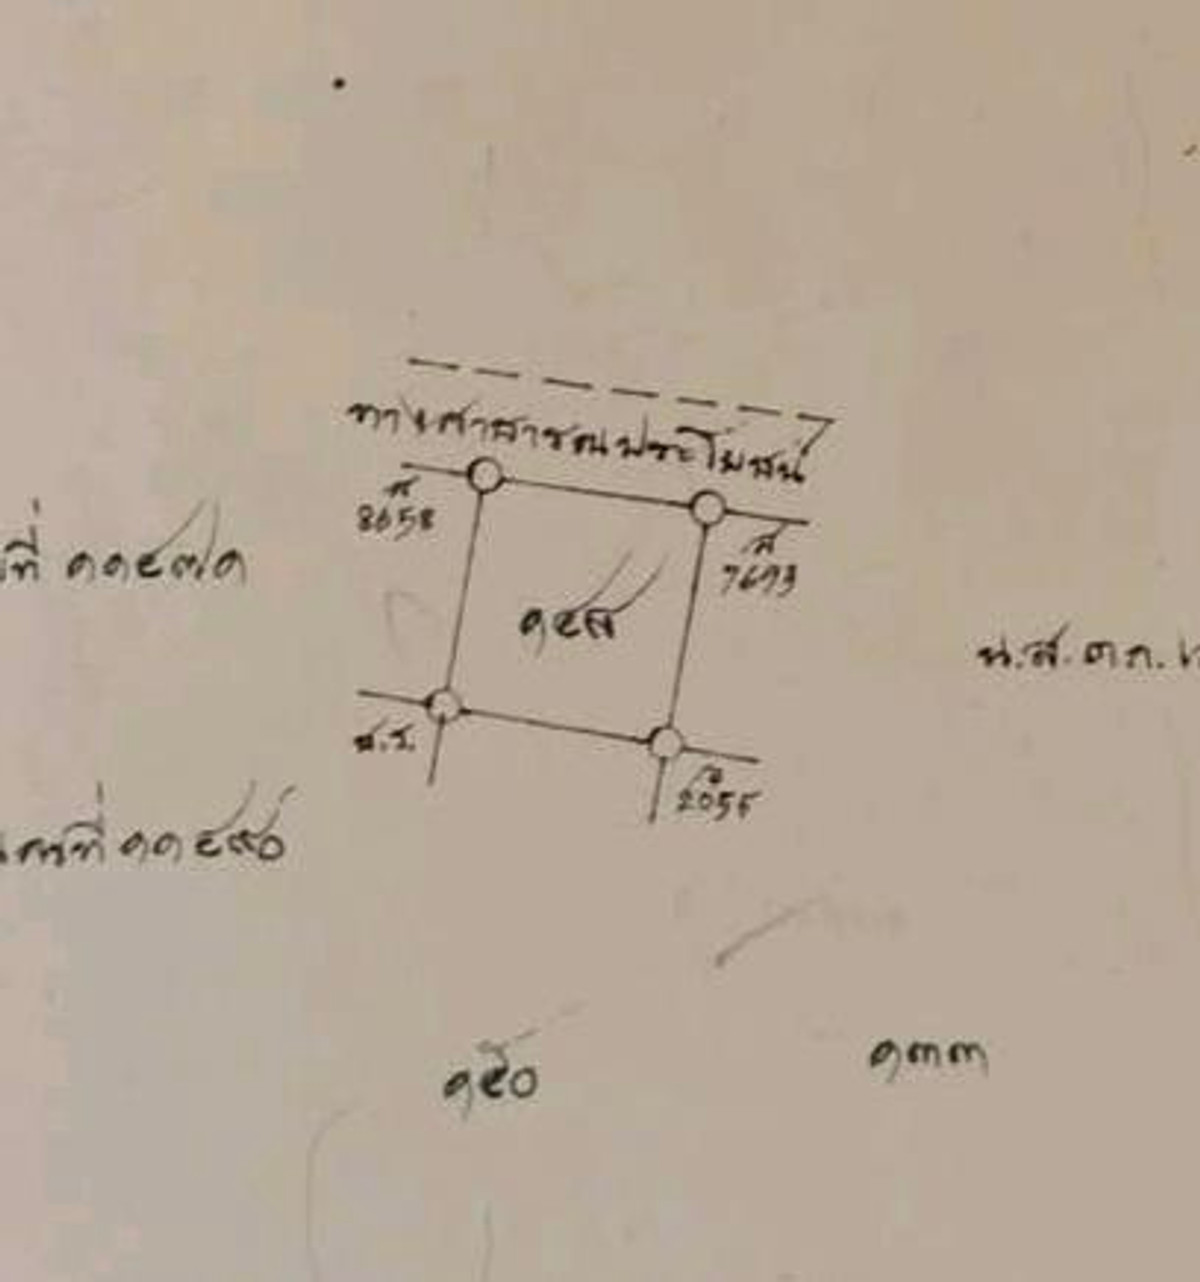 ทางสาธารณประโยชน์
8658
ที่ ๑๑๔๗๑
7693
๑๔๙
น.ส. ๓ ก.
ส.ร.
2055
ที่ ๑๑๔๙๐
๑๓๓
๑๕๐